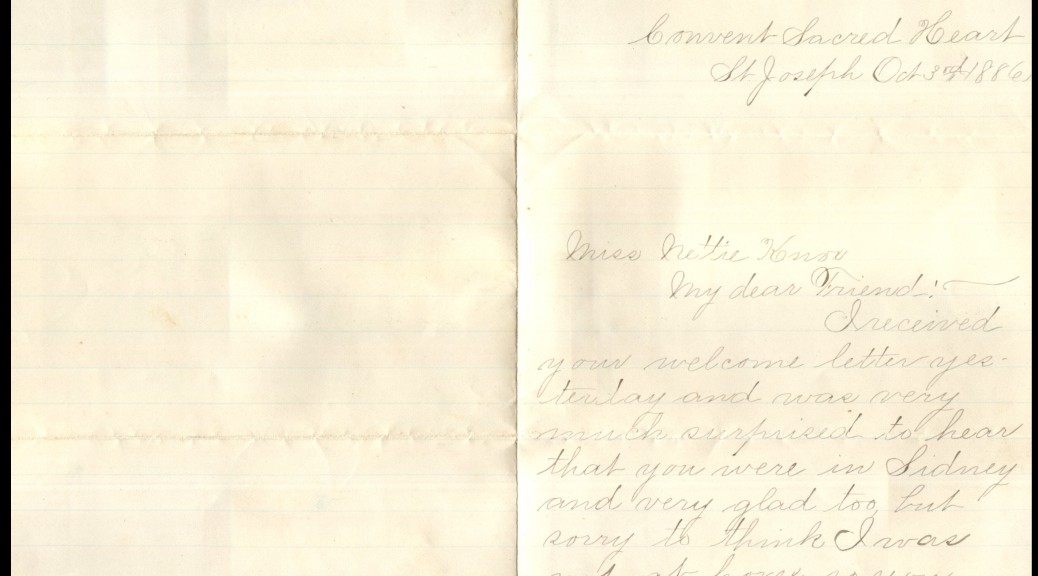 Convent Sacred Heart
St Joseph Oct 3rd 1886
Miss Nettie Knox
My dear Friend:
I received
your welcome letter yes-
terday and was very
much surprised to hear
that you were in Sidney
and very glad too, but
sorry to think I was
at home